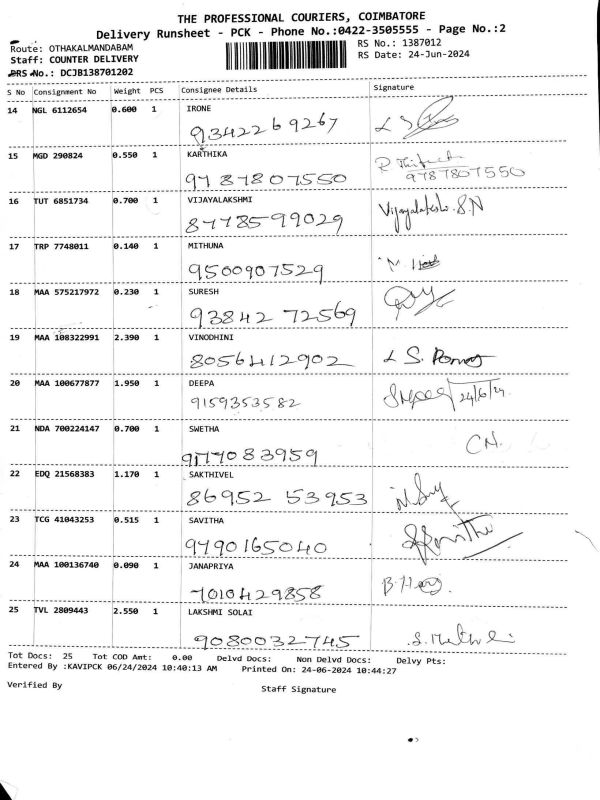 THE PROFESSIONAL COURIERS, COIMBATORE
Delivery Runsheet - PCK - Phone No.:0422-3505555 - Page No.:2
Route: OTHAKALMANDABAM RS No.: 1387012
Staff: COUNTER DELIVERY RS Date: 24-Jun-2024
DRS No.: DCJB138701202
S No Consignment No Weight PCS Consignee Details Signature
14 NGL 6112654 0.600 1 IRONE
9342269267
15 MGD 290824 0.550 1 KARTHIKA
9787807550 9787807550
16 TUT 6851734 0.700 1 VIJAYALAKSHMI
8778599029 Vijayalakshi.S.N
17 TRP 7748011 0.140 1 MITHUNA
9500907529
18 MAA 575217972 0.230 1 SURESH
93842 72569
19 MAA 108322991 2.390 1 VINODHINI
8056412902
20 MAA 100677877 1.950 1 DEEPA
9159353582 24/6/24
21 NDA 700224147 0.700 1 SWETHA
9177083959 CN.
22 EDQ 21568383 1.170 1 SAKTHIVEL
86952 53953
23 TCG 41043253 0.515 1 SAVITHA
9790165040
24 MAA 100136740 0.090 1 JANAPRIYA
7010429858
25 TVL 2809443 2.550 1 LAKSHMI SOLAI
9080032745
Tot Docs: 25 Tot COD Amt: 0.00 Delvd Docs: Non Delvd Docs: Delvy Pts:
Entered By :KAVIPCK 06/24/2024 10:40:13 AM Printed On: 24-06-2024 10:44:27
Verified By Staff Signature